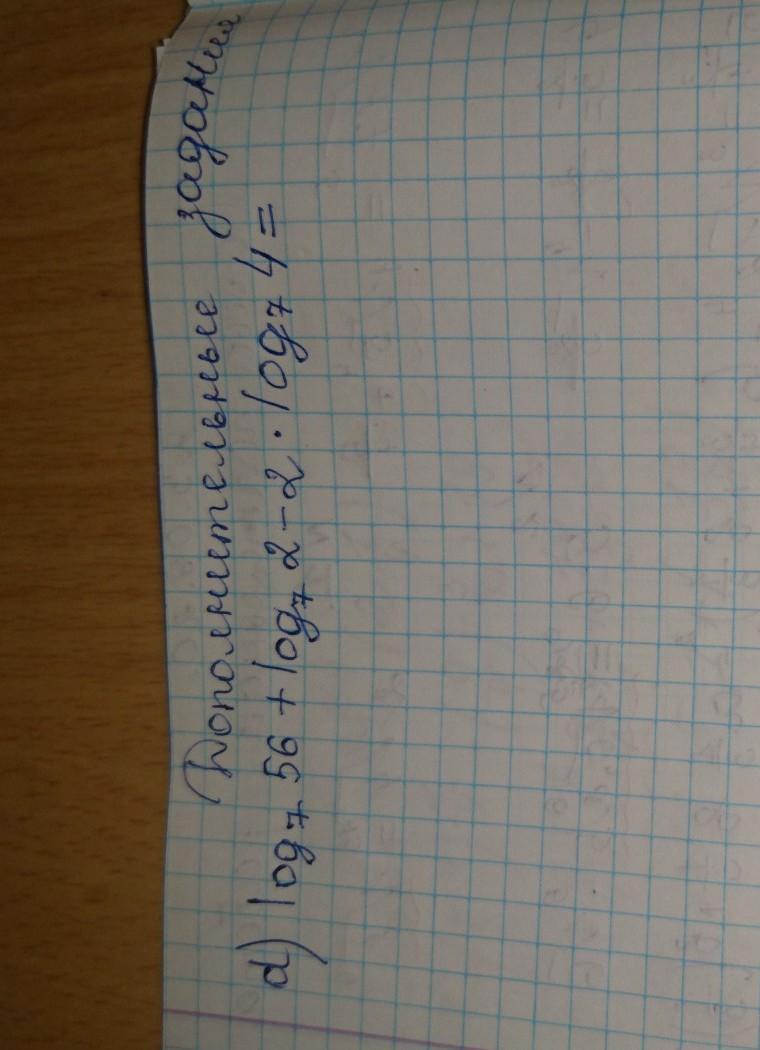 Дополнительные задания
d) log₇ 56 + log₇ 2 - 2 · log₇ 4 =